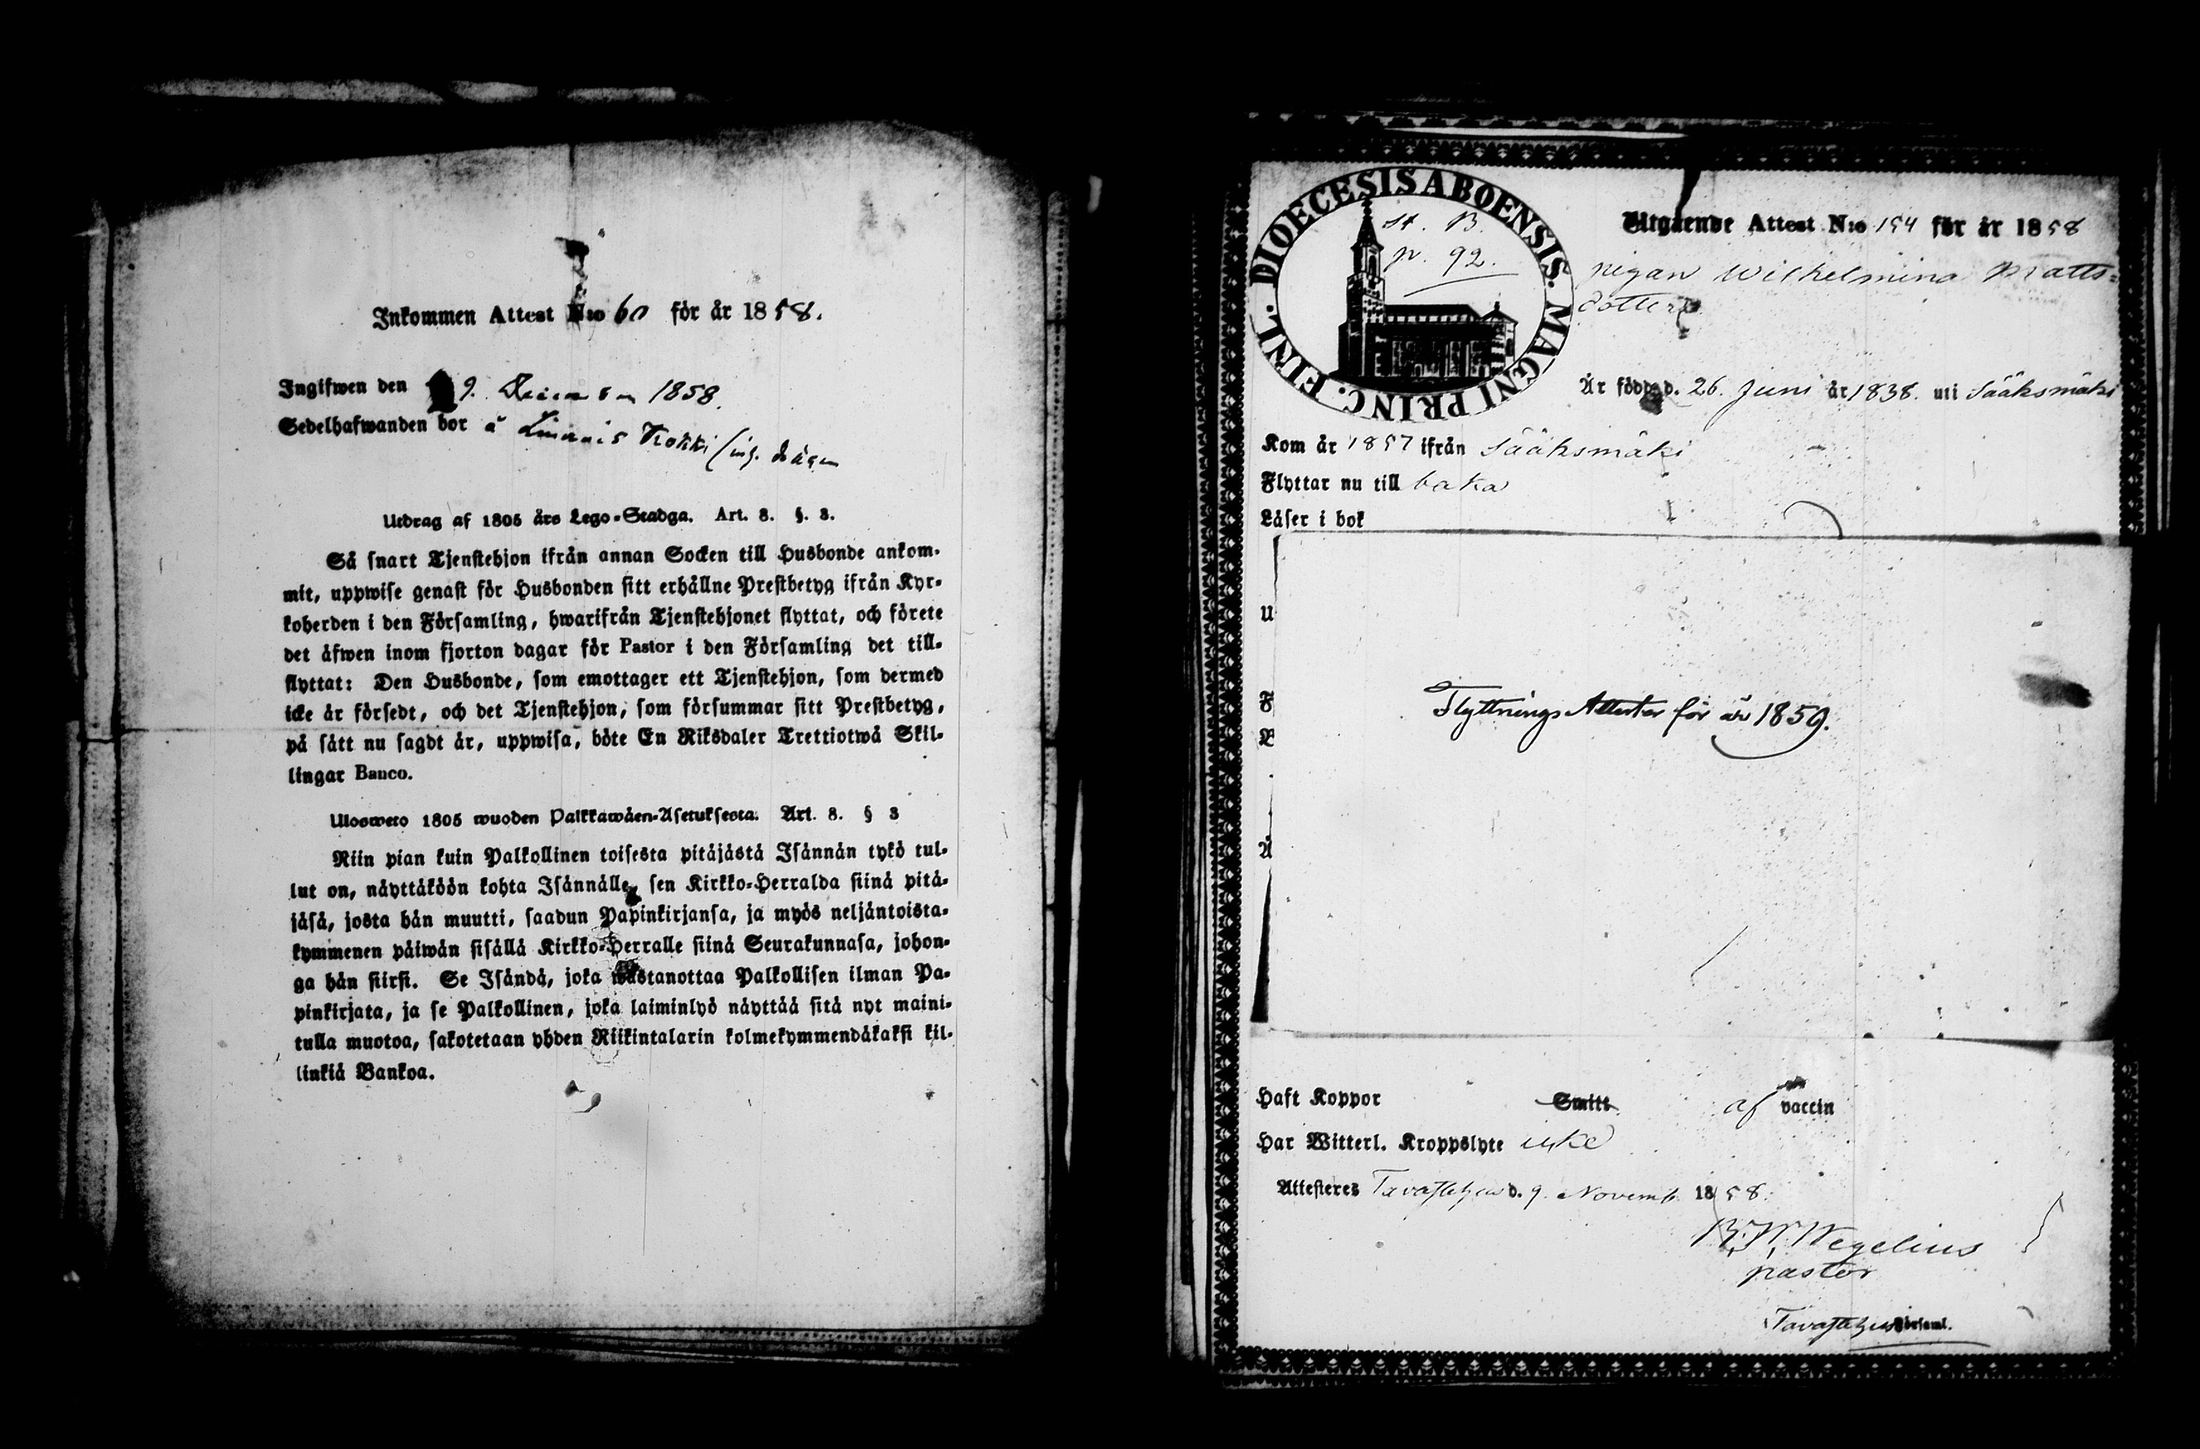 Inkommen Attest N:o 60 för år 1858.
Ingifwen den 9. December 1858.
Sedelhafwanden bor å
Utdrag af 1805 års Lego-Stadga. Art. 8. §. 3.
Så snart Tjenstehjon ifrån annan Socken till Husbonde ankom-
mit, uppwise genast för Husbonden sitt erhållne Prestbetyg ifrån Kyr-
koherden i den Församling, hwarifrån Tjenstehjonet flyttat, och förete
det äfwen inom fjorton dagar för Pastor i den Församling det till-
flyttat: Den Husbonde, som emottager ett Tjenstehjon, som dermed
icke är försedt, och det Tjenstehjon, som försummar sitt Prestbetyg,
på sätt nu sagdt är, uppwisa, böte En Riksdaler Trettiotwå Skil-
lingar Banco.
Ulosweto 1805 wuoden Palkkawäen-Asetuksesta. Art. 8. § 3
Niin pian kuin Palkollinen toisesta pitäjästä Isännän tykö tul-
lut on, näyttäköön kohta Isännälle, sen Kirkko-Herralda siinä pitä-
jäsä, josta hän muutti, saadun Papinkirjansa, ja myös neljäntoista-
kymmenen päiwän sisällä Kirkko-Herralle siinä Seurakunnasa, johon-
ga hän siirsi. Se Isändä, joka wastanottaa Palkollisen ilman Pa-
pinkirjata, ja se Palkollinen, joka laiminlyö näyttää sitä nyt maini-
tulla muotoa, sakotetaan yhden Riikintalarin kolmekymmendäkaksi kil-
linkiä Bankoa.
DIOECESIS ABOENSIS. MAGNI PRINC. FINL.
st. B.
p. 92.
Utgående Attest N:o 154 för år 1858
pigan Wilhelmina Matts-
dotter
Är född d. 26. Juni år 1838. uti Sääksmäki
Kom år 1857 ifrån Sääksmäki
Flyttar nu till baka
Läser i bok
U
F
B
Ä
Flyttnings Attester för år 1859.
Haft Koppor Smitt af vaccin
Har Witterl. Kroppslyte icke
Attesteres Tavastehus d. 9. Novemb. 1858.
B. W. Wegelius
pastor
Tavastehus Församl.